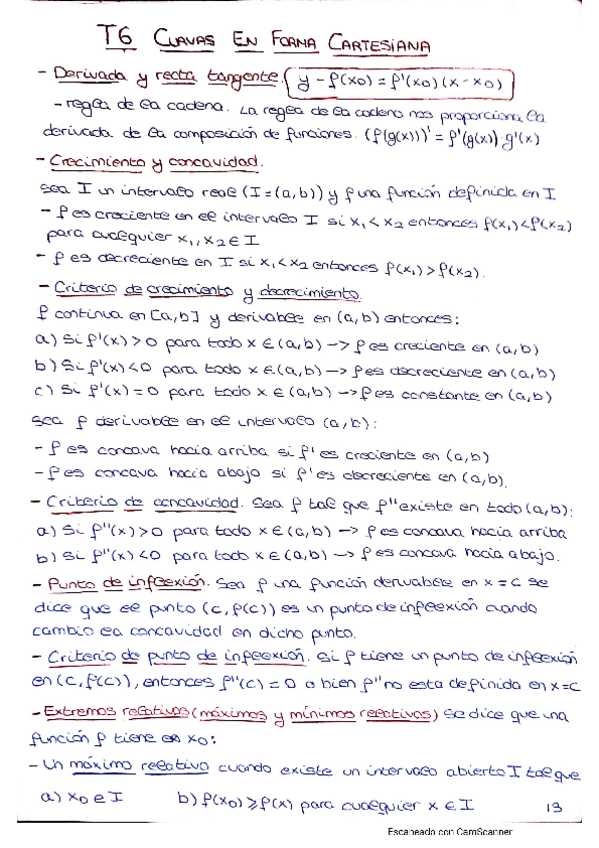 T6 CURVAS EN FORMA CARTESIANA
- Derivada y recta tangente. y - f(x0) = f'(x0)(x - x0)
- regla de la cadena. La regla de la cadena nos proporciona la
derivada de la composición de funciones. (f(g(x)))' = f'(g(x)).g'(x)
- Crecimiento y concavidad.
sea I un intervalo real (I = (a,b)) y f una función definida en I
- f es creciente en el intervalo I si x1 < x2 entonces f(x1) < f(x2)
para cualquier x1, x2 ∈ I
- f es decreciente en I si x1 < x2 entonces f(x1) > f(x2).
- Criterio de crecimiento y decrecimiento.
f continua en [a,b] y derivable en (a,b) entonces:
a) Si f'(x) > 0 para todo x ∈ (a,b) -> f es creciente en (a,b)
b) Si f'(x) < 0 para todo x ∈ (a,b) -> f es decreciente en (a,b)
c) Si f'(x) = 0 para todo x ∈ (a,b) -> f es constante en (a,b)
sea f derivable en el intervalo (a,b):
- f es concava hacia arriba si f' es creciente en (a,b)
- f es concava hacia abajo si f' es decreciente en (a,b).
- Criterio de concavidad. Sea f tal que f'' existe en todo (a,b):
a) Si f''(x) > 0 para todo x ∈ (a,b) -> f es concava hacia arriba
b) Si f''(x) < 0 para todo x ∈ (a,b) -> f es concava hacia abajo.
- Punto de inflexión. Sea f una función derivable en x = c se
dice que el punto (c, f(c)) es un punto de inflexión cuando
cambio la concavidad en dicho punto.
- Criterio de punto de inflexión. Si f tiene un punto de inflexión
en (c, f(c)), entonces f''(c) = 0 o bien f'' no esta definida en x=c
- Extremos relativos (máximos y mínimos relativos) Se dice que una
función f tiene en x0:
- Un máximo relativo cuando existe un intervalo abierto I tal que
a) x0 ∈ I b) f(x0) ⩾ f(x) para cualquier x ∈ I 19
Escaneado con CamScanner